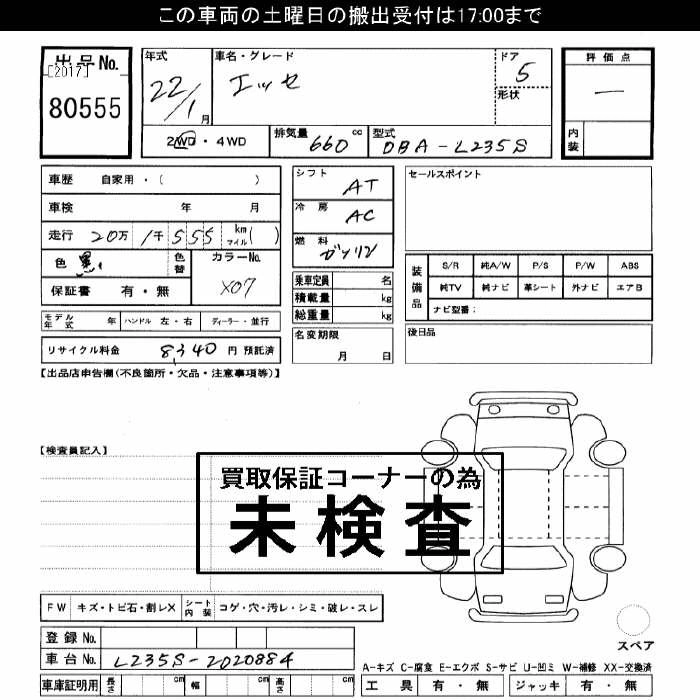 この車両の土曜日の搬出受付は17:00まで
出品No.
[2017]
80555
年式
22/1月
車名・グレード
エッセ
ドア
5
形状
評価点
—
内装
2WD・4WD
排気量 660 cc
型式 DBA-L235S
車歴 自家用・( )
車検 年 月
走行 20万 1千 555 km マイル( )
色 黒
色替
カラーNo.
X07
保証書 有・無
シフト AT
冷房 AC
燃料 ガソリン
乗車定員 名
積載量 kg
総重量 kg
セールスポイント
装備品
S/R 純A/W P/S P/W ABS
純TV 純ナビ 革シート 外ナビ エアB
ナビ型番:
モデル年式 年 ハンドル 左・右 ディーラー・並行
名変期限
月 日
後日品
リサイクル料金 8,340 円 預託済
【出品店申告欄(不良箇所・欠品・注意事項等)】
【検査員記入】
買取保証コーナーの為
未検査
FW キズ・トビ石・割レX シート内装 コゲ・穴・汚レ・シミ・破レ・スレ
スペア
登録No.
車台No. L235S-2020884
A-キズ C-腐食 E-エクボ S-サビ U-凹ミ W-補修 XX-交換済
車庫証明用 長さ cm 幅 cm 高さ cm
工具 有・無 ジャッキ 有・無